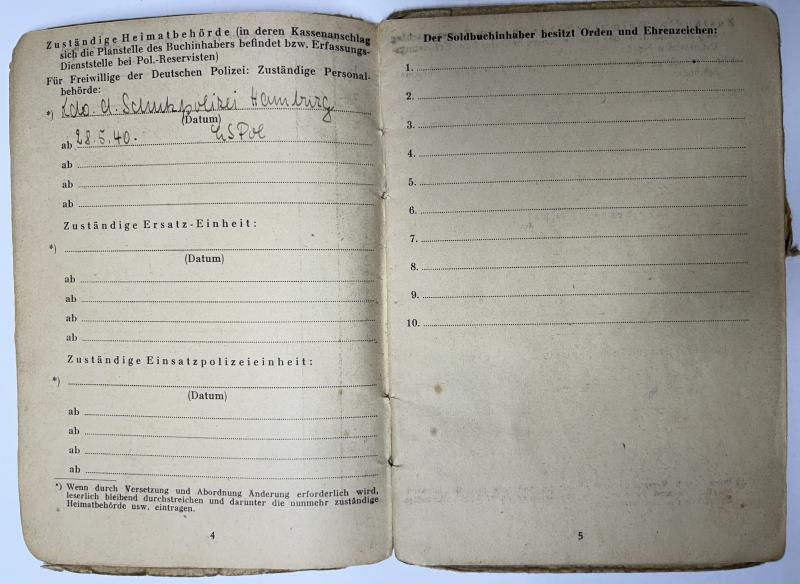 Zuständige Heimatbehörde (in deren Kassenanschlag
sich die Planstelle des Buchinhabers befindet bzw. Erfassungs-
Dienststelle bei Pol.-Reservisten)
Für Freiwillige der Deutschen Polizei: Zuständige Personal-
behörde:
*) Kdo. d. Schutzpolizei Hamburg
(Datum)
ab 28.5.40. LSPol
ab
ab
ab
Zuständige Ersatz-Einheit:
*)
(Datum)
ab
ab
ab
ab
Zuständige Einsatzpolizeieinheit:
*)
(Datum)
ab
ab
ab
ab
*) Wenn durch Versetzung und Abordnung Änderung erforderlich wird,
leserlich bleibend durchstreichen und darunter die nunmehr zuständige
Heimatbehörde usw. eintragen.
4
Der Soldbuchinhaber besitzt Orden und Ehrenzeichen:
1.
2.
3.
4.
5.
6.
7.
8.
9.
10.
5